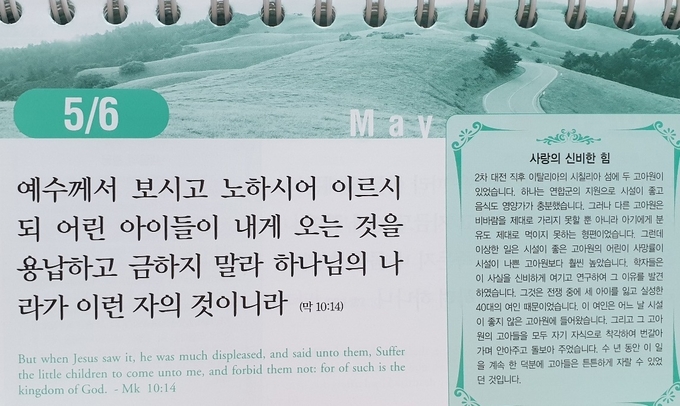 5/6
May
예수께서 보시고 노하시어 이르시
되 어린 아이들이 내게 오는 것을
용납하고 금하지 말라 하나님의 나
라가 이런 자의 것이니라 (막 10:14)
But when Jesus saw it, he was much displeased, and said unto them, Suffer
the little children to come unto me, and forbid them not: for of such is the
kingdom of God. - Mk 10:14
사랑의 신비한 힘
2차 대전 직후 이탈리아의 시칠리아 섬에 두 고아원이
있었습니다. 하나는 연합군의 지원으로 시설이 좋고
음식도 영양가가 충분했습니다. 그러나 다른 고아원은
비바람을 제대로 가리지 못할 뿐 아니라 아기에게 분
유도 제대로 먹이지 못하는 형편이었습니다. 그런데
이상한 일은 시설이 좋은 고아원의 어린이 사망률이
시설이 나쁜 고아원보다 훨씬 높았습니다. 학자들은
이 사실을 신비하게 여기고 연구하여 그 이유를 발견
하였습니다. 그것은 전쟁 중에 세 아이를 잃고 실성한
40대의 여인 때문이었습니다. 이 여인은 어느 날 시설
이 좋지 않은 고아원에 들어왔습니다. 그리고 그 고아
원의 고아들을 모두 자기 자식으로 착각하여 번갈아
가며 안아주고 돌보아 주었습니다. 수 년 동안 이 일
을 계속 한 덕분에 고아들은 튼튼하게 자랄 수 있었
던 것입니다.